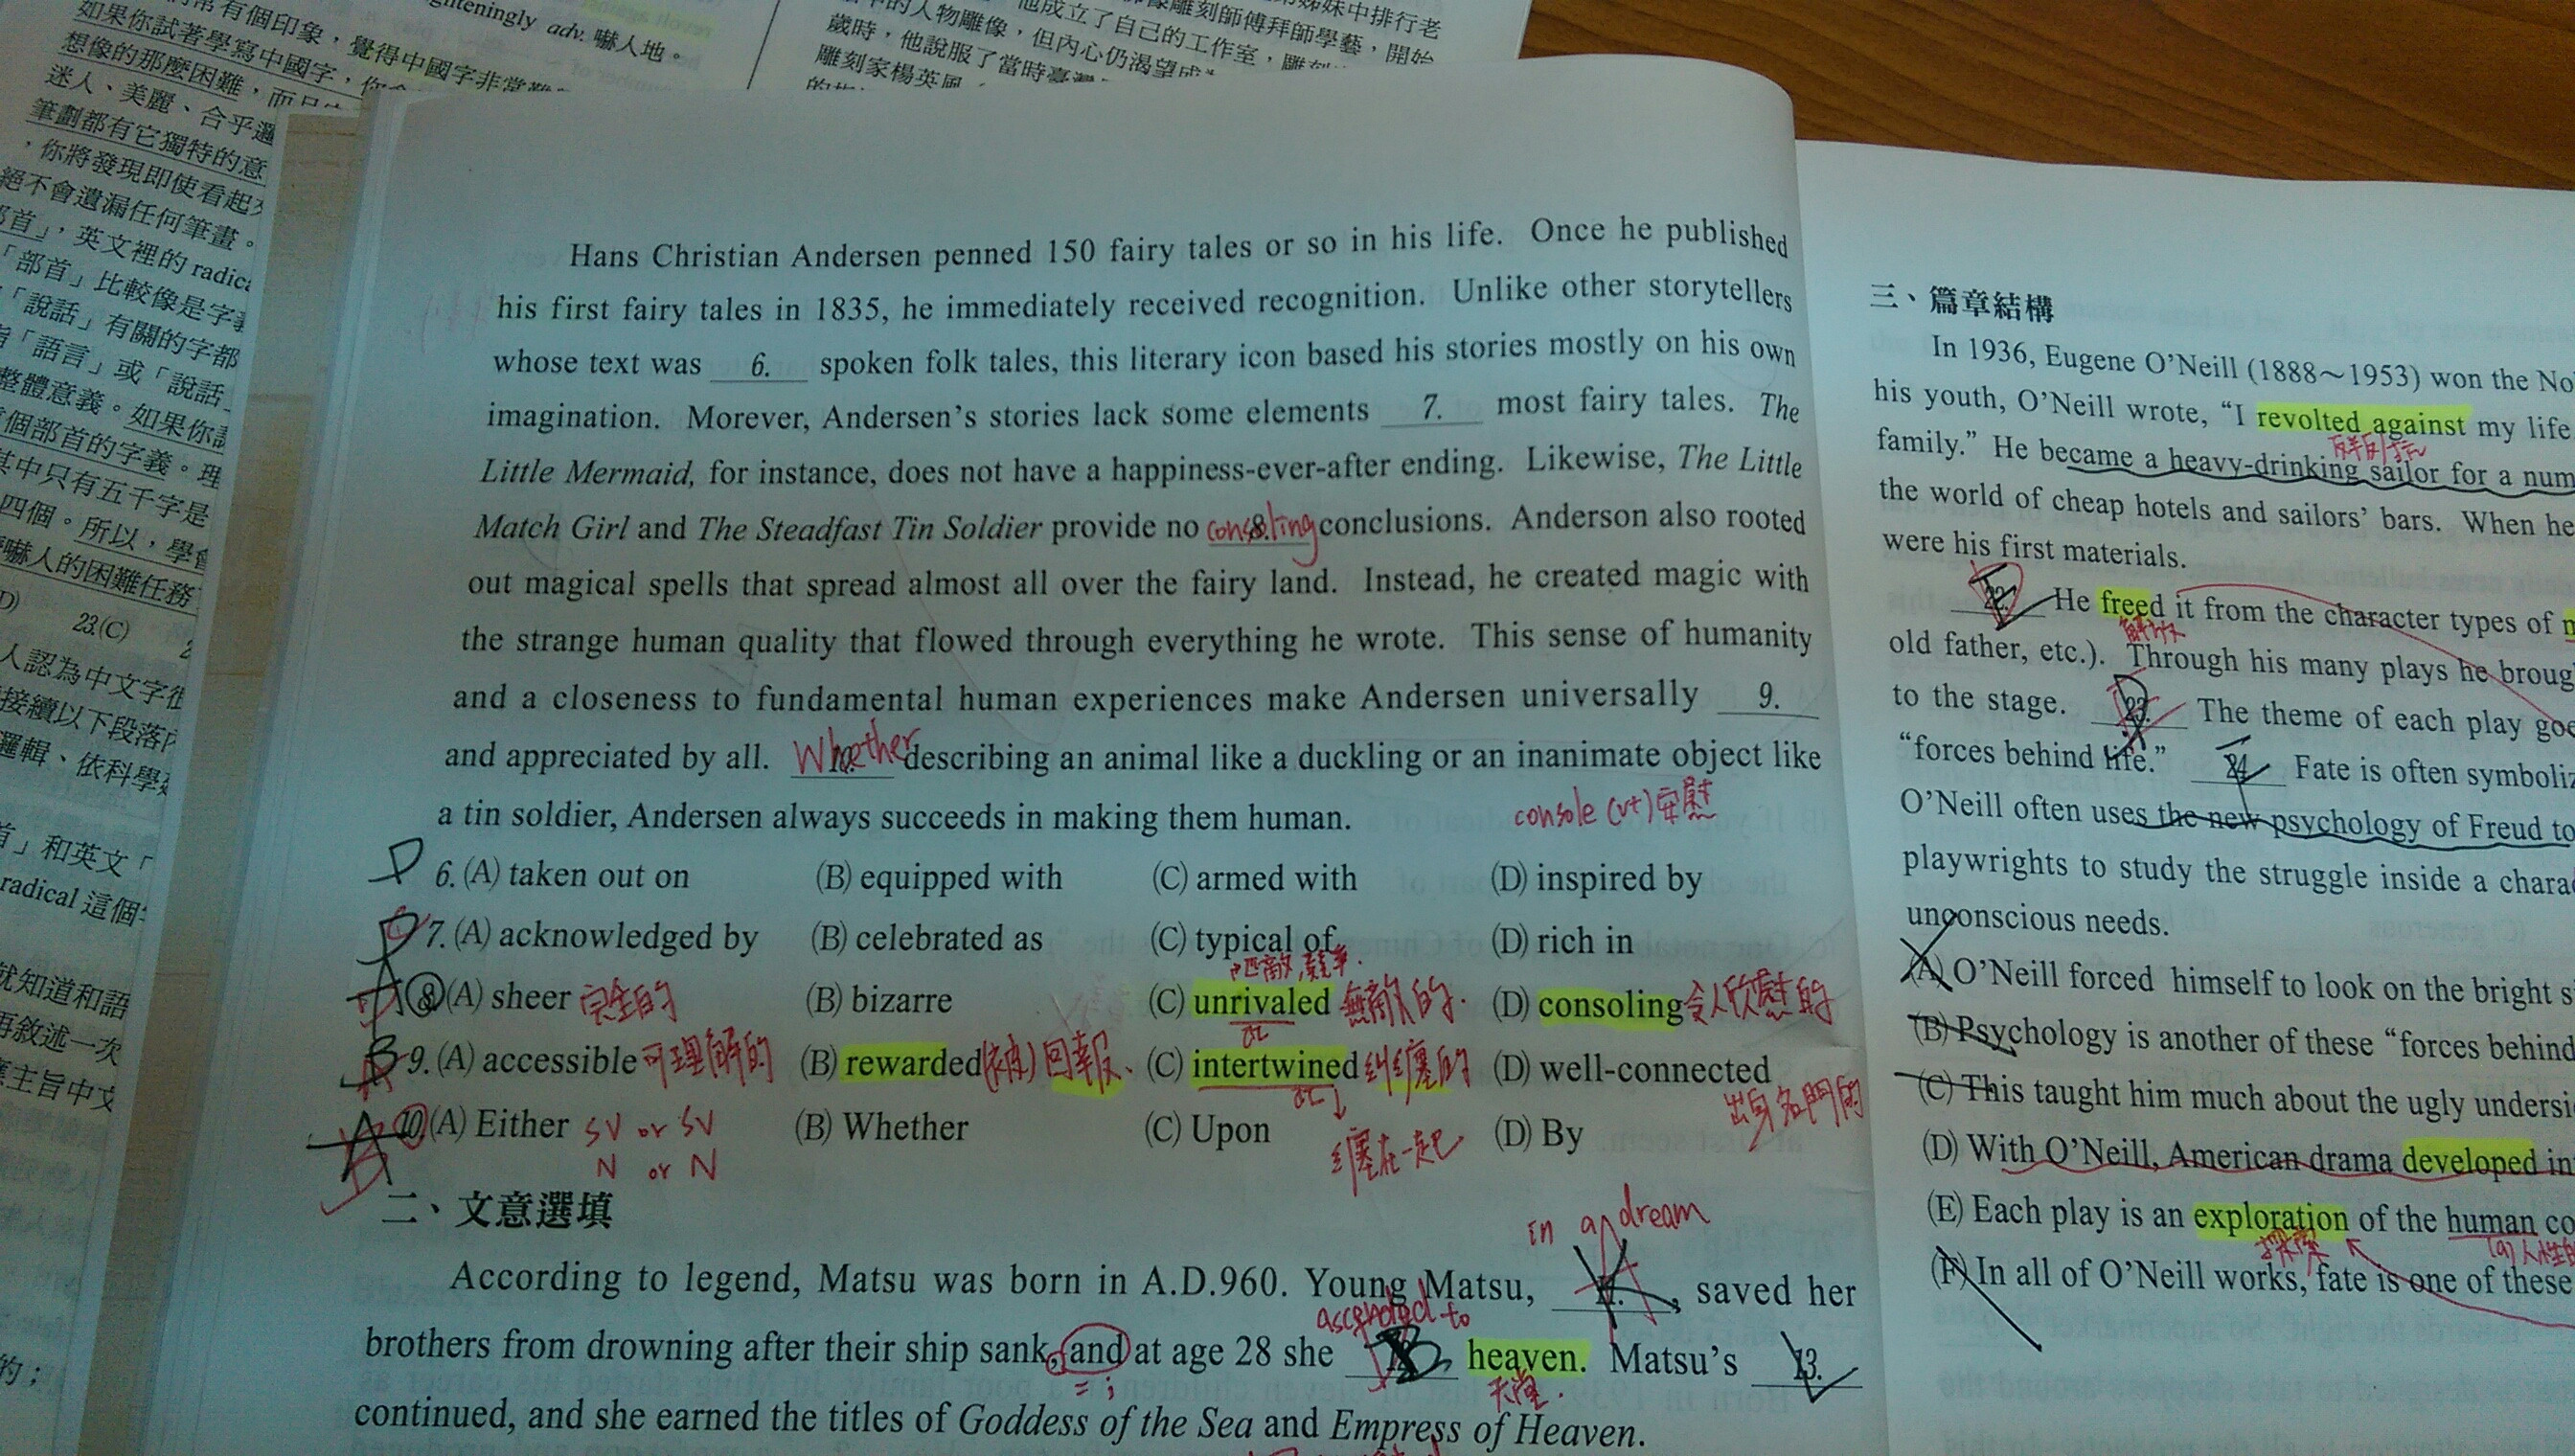 如果你試著學寫中國字，你會
想像的那麼困難，而只
迷人、美麗、合乎邏
筆劃都有它獨特的意
，你將發現即使看起
絕不會遺漏任何筆畫。
部首」，英文裡的 radica
「部首」比較像是字
「說話」有關的字都
「語言」或「說話
整體意義。如果你
個部首的字義。理
其中只有五千字是
四個。所以，學
嚇人的困難任務
23.(C)
人認為中文字很
接續以下段落
邏輯、依科學
首」和英文「
radical 這個
就知道和語
再敘述一次
應主旨中文
有個印象，覺得中國字非常難
ghteningly adv. 嚇人地。
雕刻師傅拜師學藝，開始
的人物雕像，但內心仍渴望成
歲時，他說服了當時臺灣
他成立了自己的工作室，雕刻
姊妹中排行老
雕刻家楊英風
Hans Christian Andersen penned 150 fairy tales or so in his life. Once he published
his first fairy tales in 1835, he immediately received recognition. Unlike other storytellers
whose text was 6. spoken folk tales, this literary icon based his stories mostly on his own
imagination. Morever, Andersen's stories lack some elements 7. most fairy tales. The
Little Mermaid, for instance, does not have a happiness-ever-after ending. Likewise, The Little
Match Girl and The Steadfast Tin Soldier provide no 8. consoling conclusions. Anderson also rooted
out magical spells that spread almost all over the fairy land. Instead, he created magic with
the strange human quality that flowed through everything he wrote. This sense of humanity
and a closeness to fundamental human experiences make Andersen universally 9.
and appreciated by all. 10. Whether describing an animal like a duckling or an inanimate object like
a tin soldier, Andersen always succeeds in making them human.
console (vt) 安慰
D 6. (A) taken out on (B) equipped with (C) armed with (D) inspired by
7. (A) acknowledged by (B) celebrated as (C) typical of (D) rich in
匹敵,競爭.
8 (A) sheer 完全的 (B) bizarre (C) unrivaled 無敵的. (D) consoling 令人欣慰的
9. (A) accessible 可理解的 (B) rewarded (被)回報、 (C) intertwined 糾纏的 (D) well-connected
出身名門的
10. (A) Either SV or SV (B) Whether (C) Upon (D) By
N or N
纏在一起
二、文意選填
in a dream
According to legend, Matsu was born in A.D.960. Young Matsu, 11. , saved her
ascended to
brothers from drowning after their ship sank, and at age 28 she 12. heaven. Matsu's 13.
= ;
天堂.
continued, and she earned the titles of Goddess of the Sea and Empress of Heaven.
三、篇章結構
In 1936, Eugene O'Neill (1888～1953) won the No
his youth, O'Neill wrote, "I revolted against my life
反叛,反抗
family." He became a heavy-drinking sailor for a num
the world of cheap hotels and sailors' bars. When he
were his first materials.
22. He freed it from the character types of
解放
old father, etc.). Through his many plays he broug
to the stage. 23. The theme of each play goe
"forces behind life." 24. Fate is often symboliz
O'Neill often uses the new psychology of Freud to
playwrights to study the struggle inside a chara
unconscious needs.
(A) O'Neill forced himself to look on the bright s
(B) Psychology is another of these "forces behind
(C) This taught him much about the ugly undersi
(D) With O'Neill, American drama developed in
(E) Each play is an exploration of the human co
探索
(F) In all of O'Neill works, fate is one of these